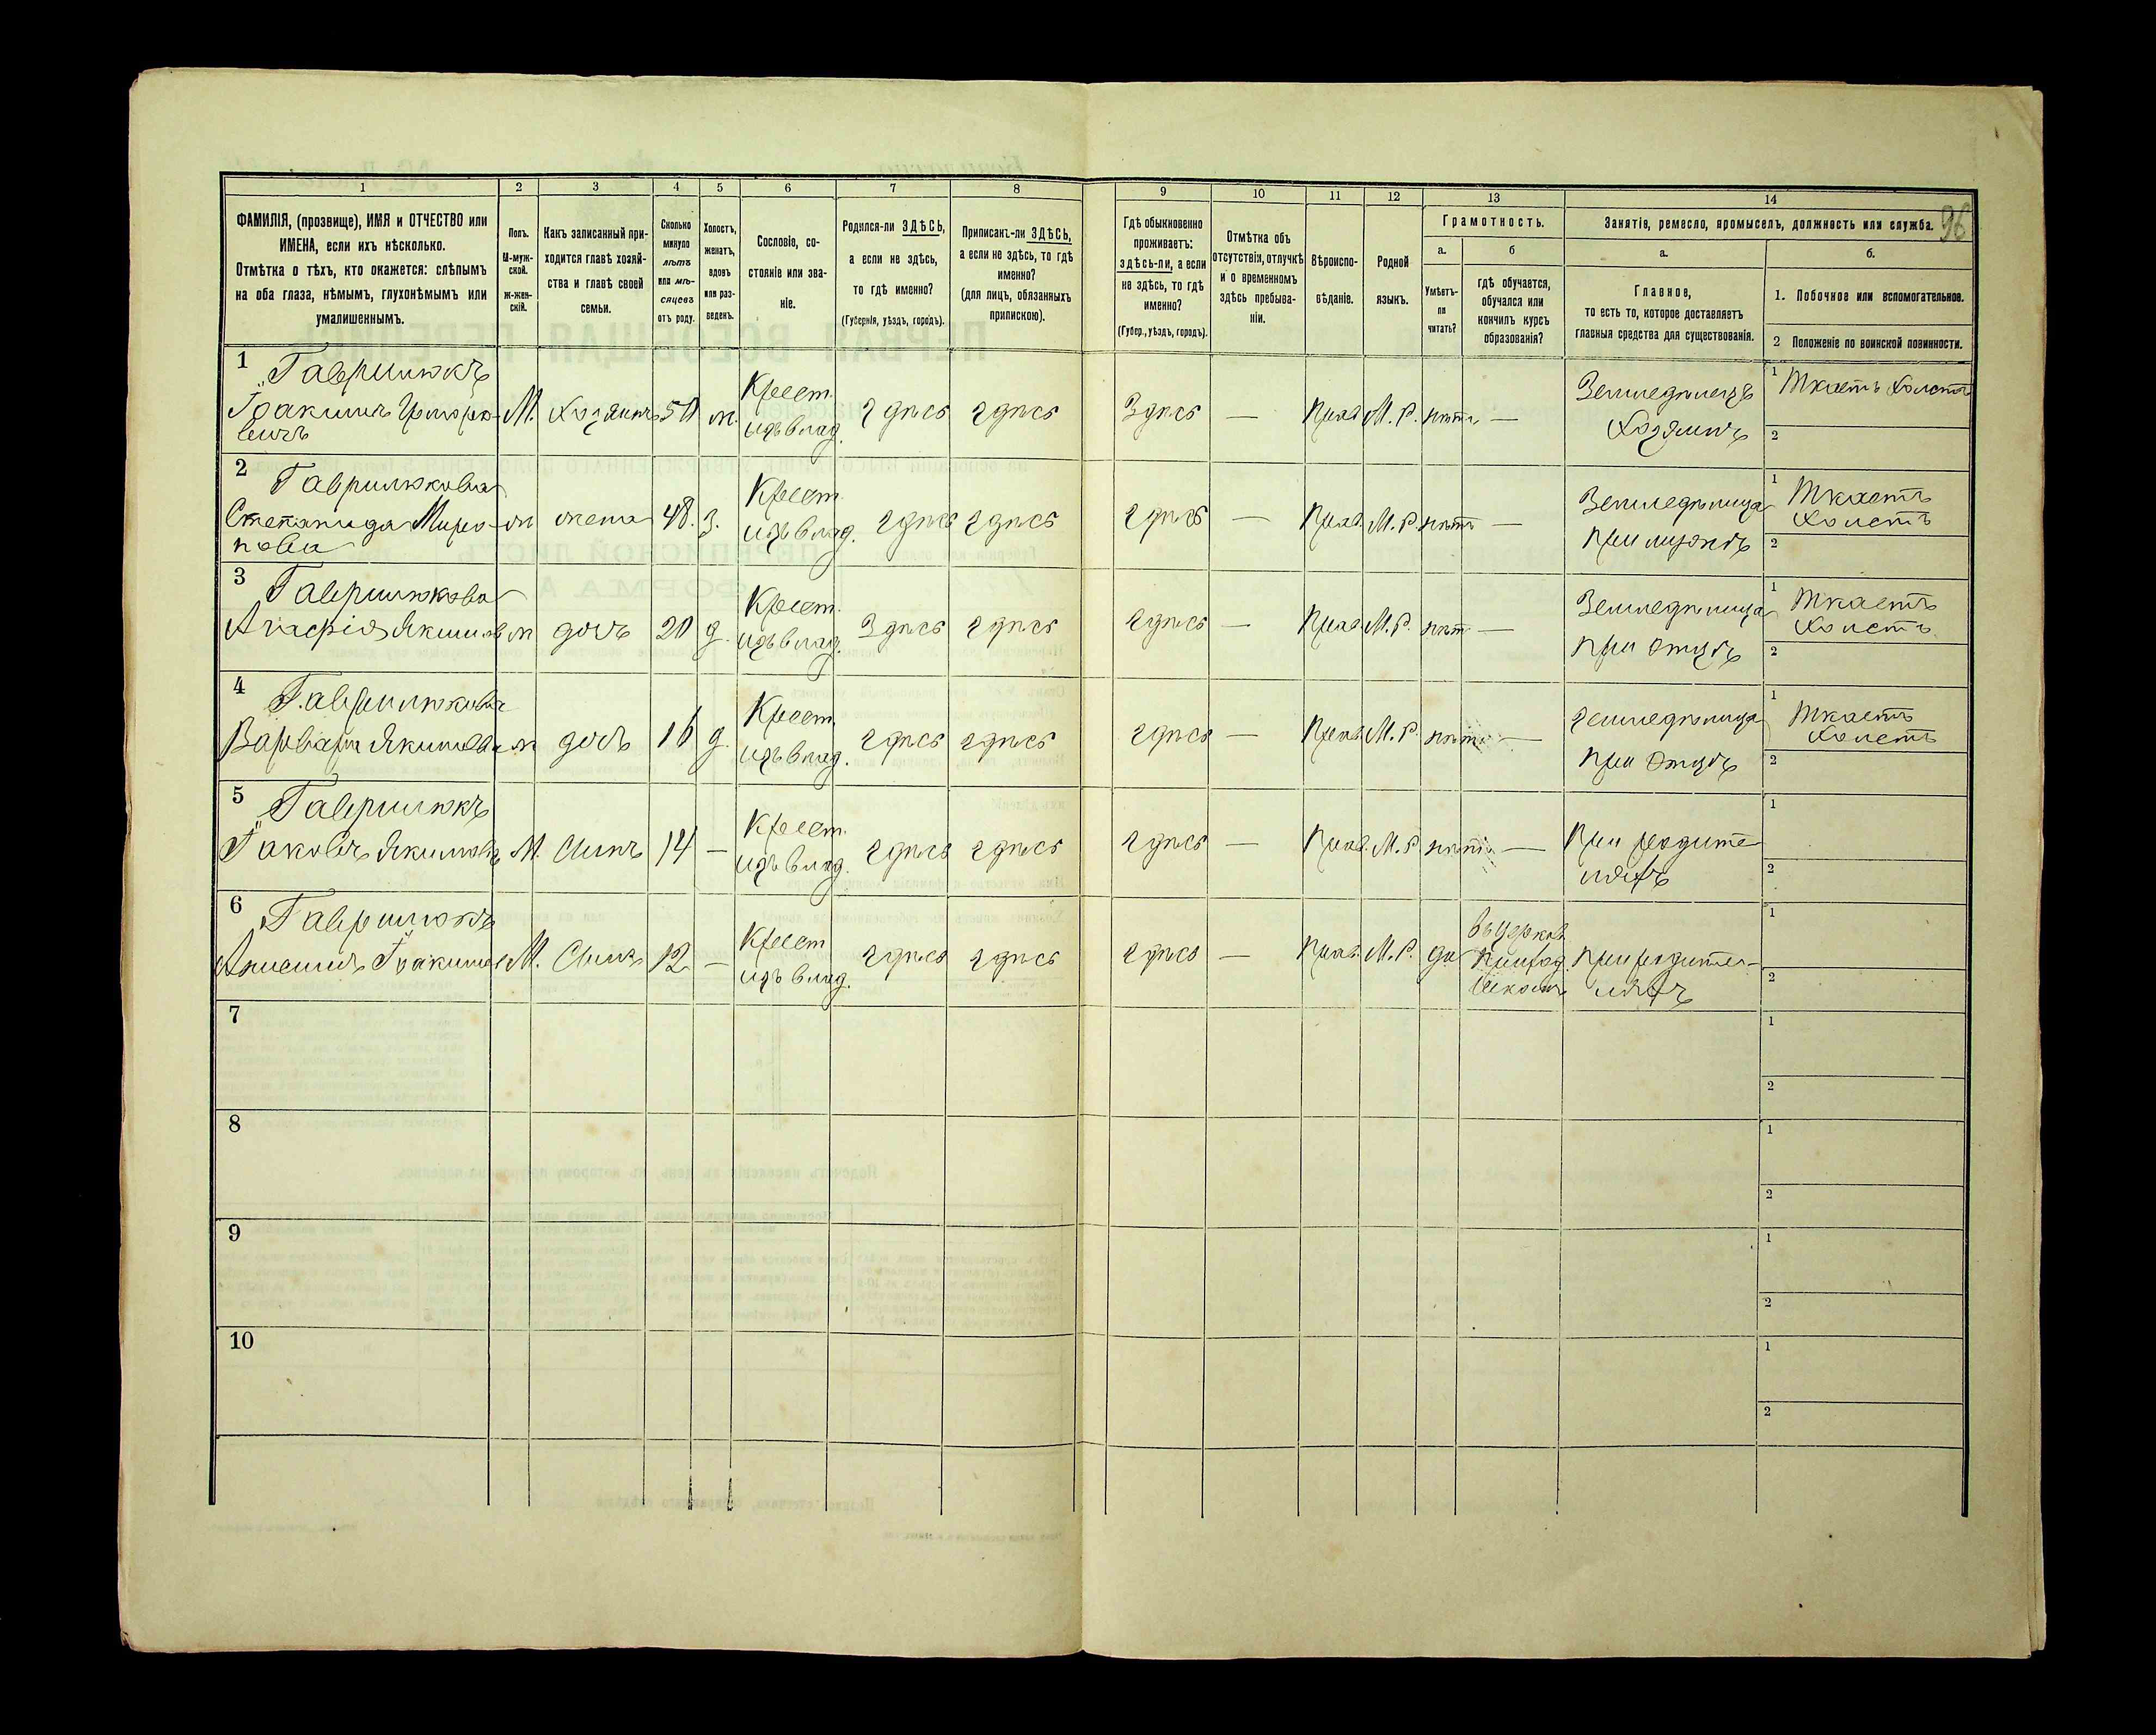 96
1 2 3 4 5 6 7 8 9 10 11 12 13 14
ФАМИЛІЯ, (прозвище), ИМЯ и ОТЧЕСТВО или
ИМЕНА, если ихъ нѣсколько.
Отмѣтка о тѣхъ, кто окажется: слѣпымъ
на оба глаза, нѣмымъ, глухонѣмымъ или
умалишеннымъ.
Полъ.
М-муж-
ской.
Ж-жен-
скій.
Какъ записанный при-
ходится главѣ хозяй-
ства и главѣ своей
семьи.
Сколько
минуло
лѣтъ
или мѣ-
сяцевъ
отъ роду.
Холостъ,
женатъ,
вдовъ
или раз-
веденъ.
Сословіе, со-
стояніе или зва-
ніе.
Родился-ли ЗДѢСЬ,
а если не здѣсь,
то гдѣ именно?
(Губернія, уѣздъ, городъ).
Приписанъ-ли ЗДѢСЬ,
а если не здѣсь, то гдѣ
именно?
(для лицъ, обязанныхъ
припискою).
Гдѣ обыкновенно
проживаетъ:
здѣсь-ли, а если
не здѣсь, то гдѣ
именно?
(Губер., уѣздъ, городъ).
Отмѣтка объ
отсутствіи, отлучкѣ
и о временномъ
здѣсь пребыва-
ніи.
Вѣроиспо-
вѣданіе.
Родной
языкъ.
Грамотность.
а.
Умѣетъ-
ли
читать?
б
гдѣ обучается,
обучался или
кончилъ курсъ
образованія?
Занятіе, ремесло, промыселъ, должность или служба.
а.
Главное,
то есть то, которое доставляетъ
главныя средства для существованія.
б.
1. Побочное или вспомогательное.
2 Положеніе по воинской повинности.
1 Гаврилюкъ
М. Хозяинъ 50 ж. Крест.
изъ влад. здѣсь здѣсь Здѣсь — Прав. М. Р. нѣтъ — Земледѣлецъ
Хозяинъ
1 Ткаетъ Холстъ
2
2 Гаврилюкова
Степанида Миро-
нова
ж жена 48. з. Крест.
изъ влад. здѣсь здѣсь здѣсь — Прав. М. Р. нѣтъ — Земледѣлица
при мужѣ
1 Ткаетъ
Холстъ
2
3 Гаврилюкова
ж дочь 20 д. Крест.
изъ влад. Здѣсь здѣсь здѣсь — Прав. М. Р. нѣт — Земледѣлица
при Отцѣ
1 Ткаетъ
Холстъ
2
4 Гаврилюкова
Варвара Якимова ж дочь 16 д. Крест.
изъ влад. здѣсь здѣсь здѣсь — Прав. М. Р. нѣтъ — земледѣлица
при Отцѣ
1 Ткаетъ
Холстъ
2
5 Гаврилюкъ
Іаковъ Якимовъ М. Сынъ 14 — Крест.
изъ влад. здѣсь здѣсь здѣсь — Прав. М. Р. нѣтъ — При родите-
ляхъ
1
2
6 Гаврилюкъ
Анисимъ Іоакимов М. Сынъ 12 — Крест
изъ влад. здѣсь здѣсь здѣсь — Прав. М. Р. да въ церков.
приход.
школѣ
при родите-
ляхъ
1
2
7
1
2
8
1
2
9
1
2
10
1
2